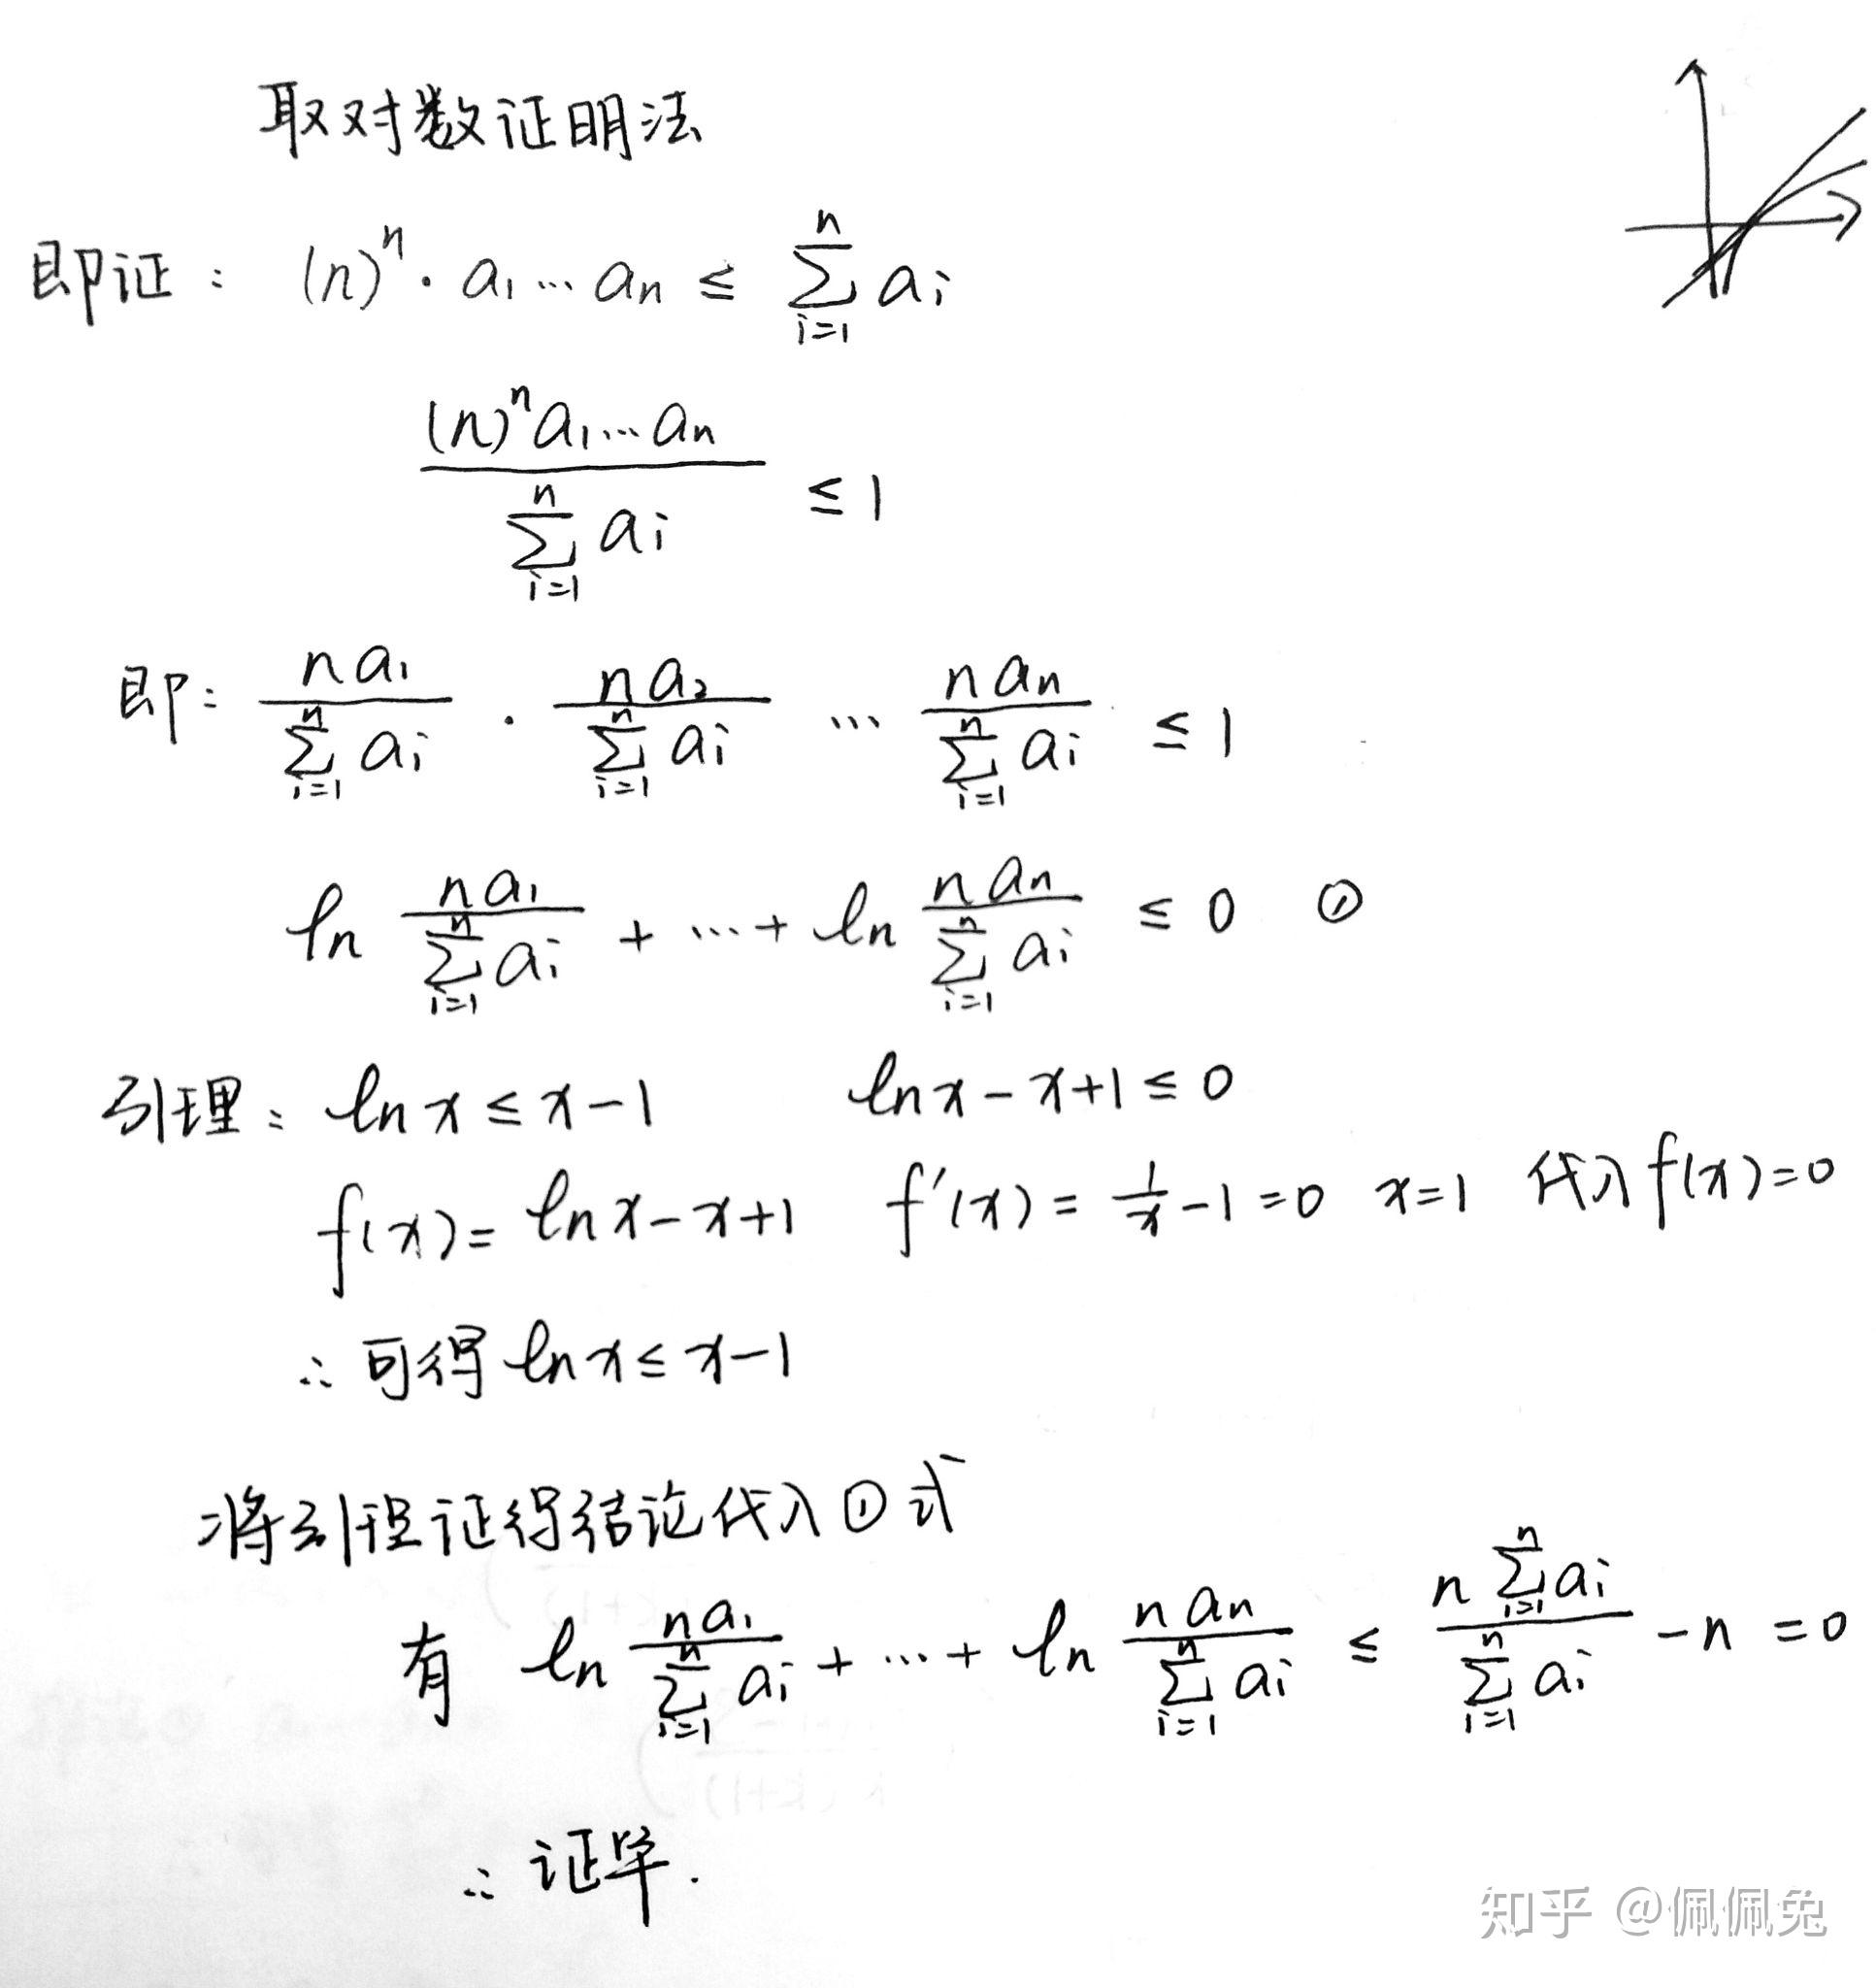 取对数证明法
即证： (n)^n · a₁ … aₙ ≤ \sum_{i=1}^{n} a_i
\frac{(n)^n a_1 … a_n}{\sum_{i=1}^{n} a_i} ≤ 1
即： \frac{n a_1}{\sum_{i=1}^{n} a_i} · \frac{n a_2}{\sum_{i=1}^{n} a_i} … \frac{n a_n}{\sum_{i=1}^{n} a_i} ≤ 1
ln \frac{n a_1}{\sum_{i=1}^{n} a_i} + … + ln \frac{n a_n}{\sum_{i=1}^{n} a_i} ≤ 0 ①
引理： ln x ≤ x − 1 ln x − x + 1 ≤ 0
f(x) = ln x − x + 1 f′(x) = \frac{1}{x} − 1 = 0 x = 1 代入 f(x) = 0
∴ 可得 ln x ≤ x − 1
将引理证得结论代入①式
有 ln \frac{n a_1}{\sum_{i=1}^{n} a_i} + … + ln \frac{n a_n}{\sum_{i=1}^{n} a_i} ≤ \frac{n \sum_{i=1}^{n} a_i}{\sum_{i=1}^{n} a_i} − n = 0
∴ 证毕.
知乎 @佩佩兔